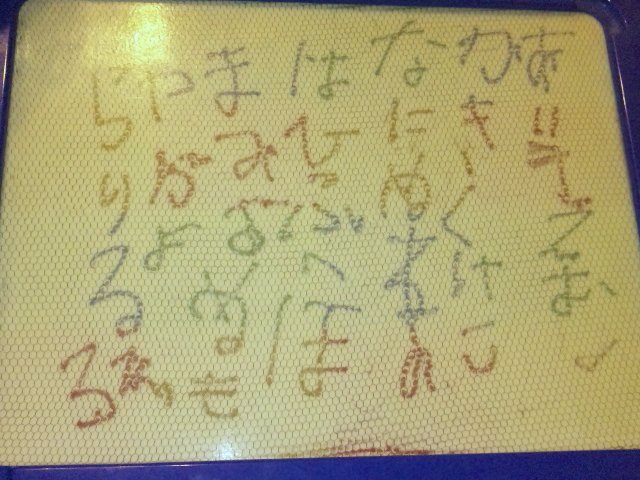 あいうえお
かきくけこ
なにぬねの
はひふへほ
まみむめも
やゆよ
らりるれろ